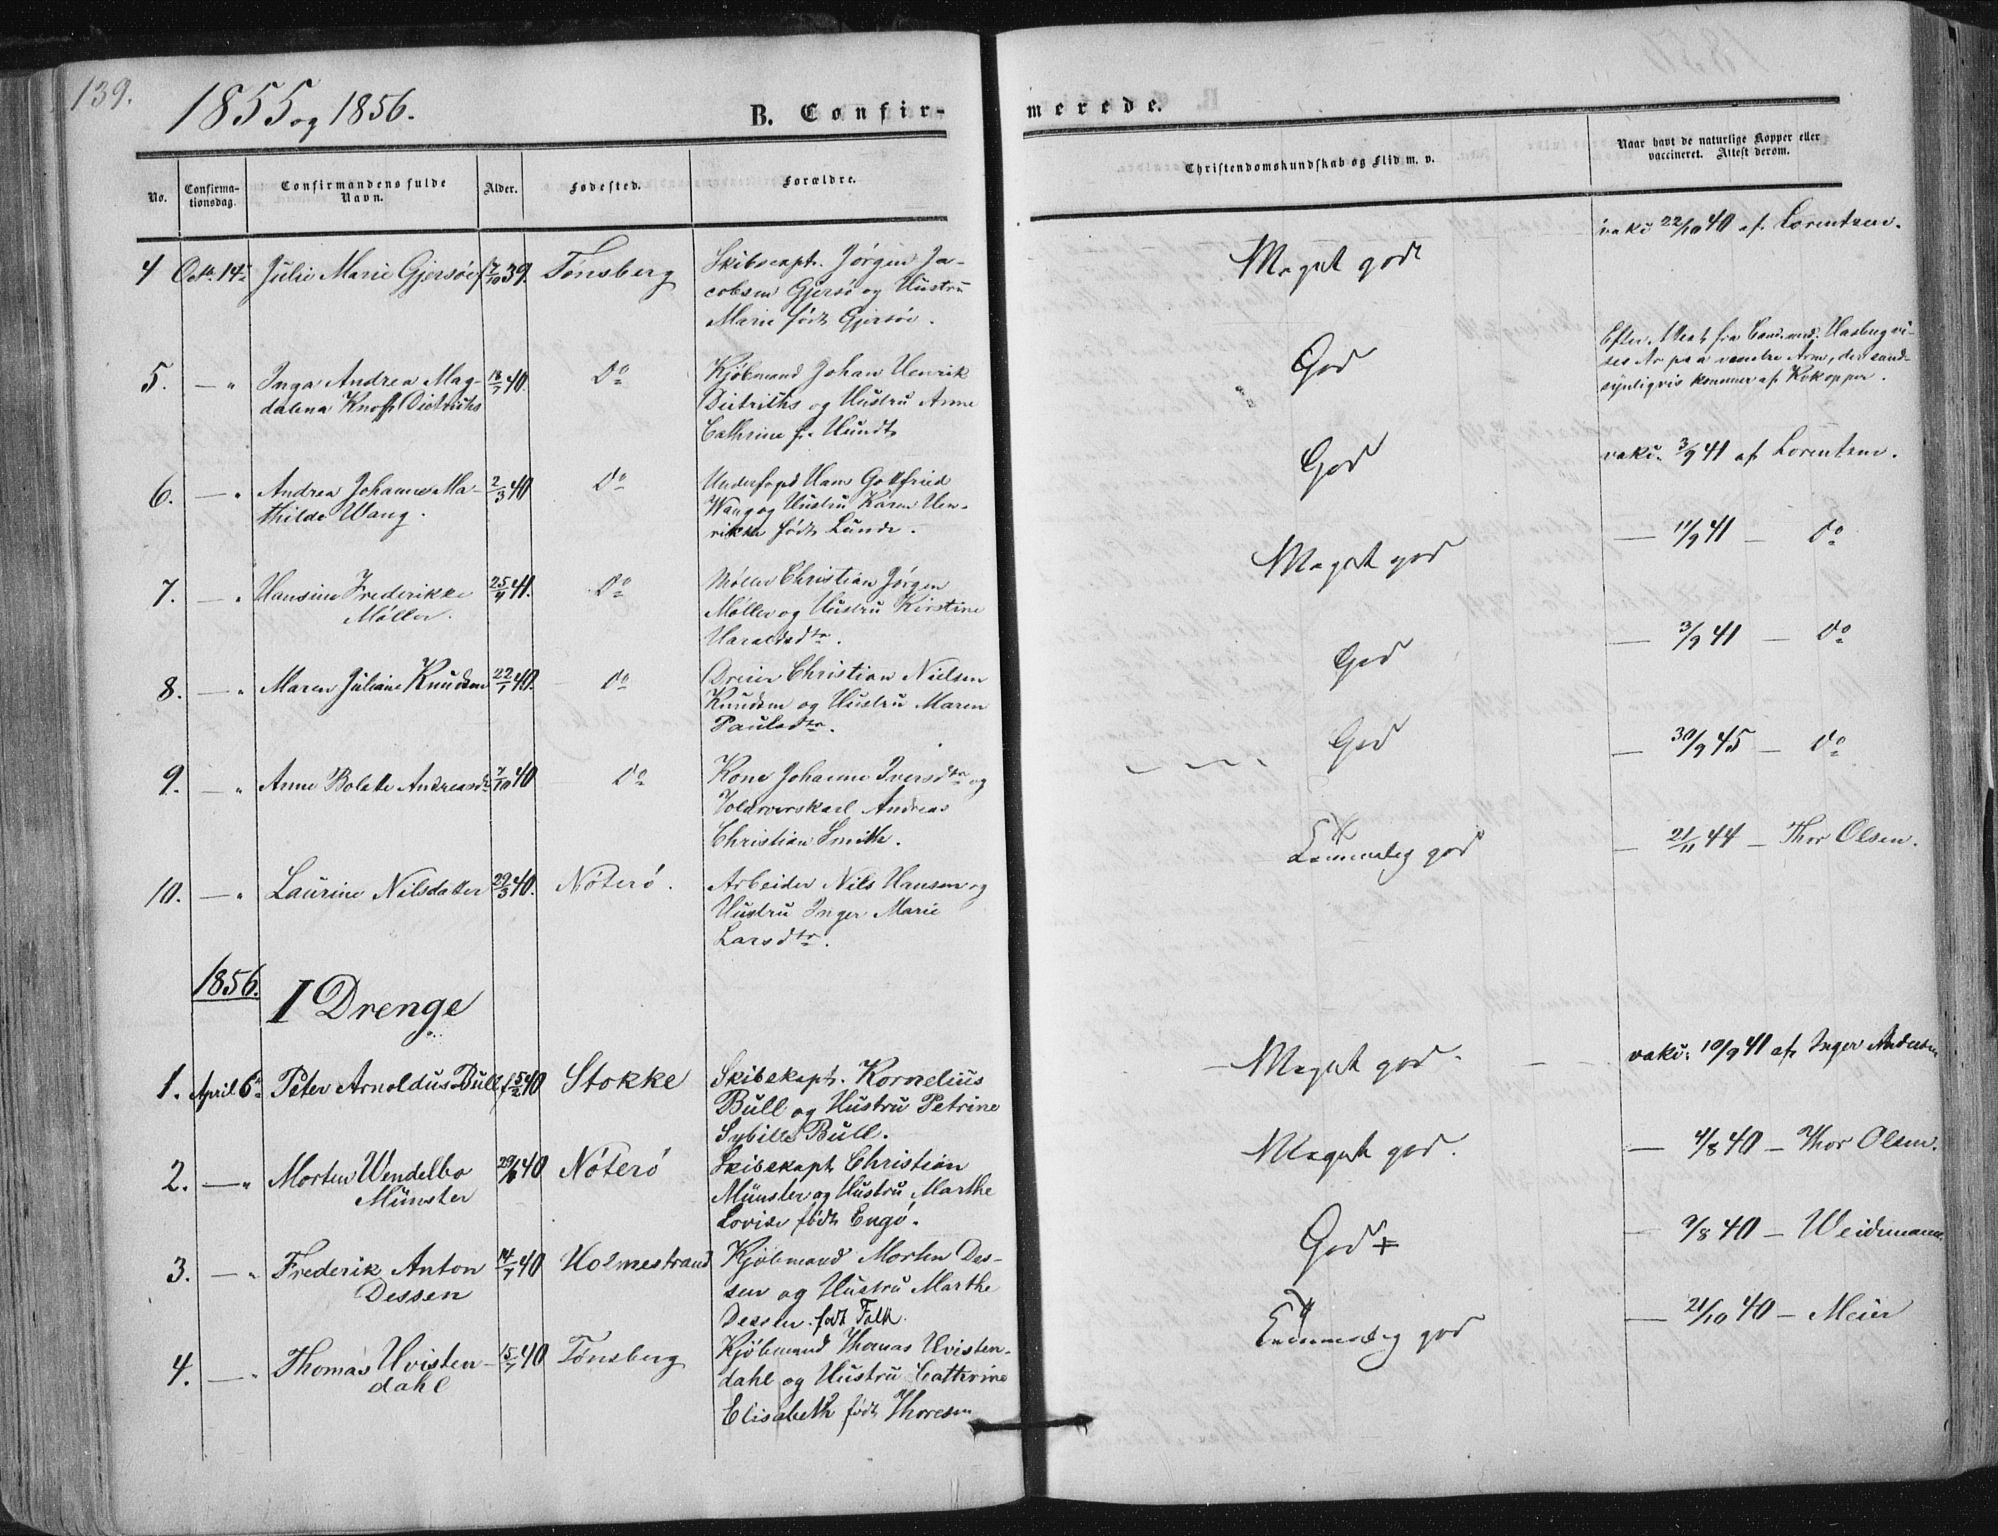 139.
1855 og 1856.
B. Confirmerede.
No.
Confirmationsdag.
Confirmandens fulde Navn.
Alder.
Fødested.
Forældre.
Christendomskundskab og Flid m. v.
Naar havt de naturlige Kopper eller vaccineret. Attest derom.
4 Octb. 14de Julie Marie Gjersøe f 7/10 39. Tønsberg Skibscapt. Jørgen Ja-
cobsen Gjersø og Hustru
Marie født Gjersøe.
Meget godt
vakc 22/10 40 af Lorentzen.
5. — " Inga Andrea Mag-
dalena Knoff Dietrichs
18/7 40. Do Kjøbmand Johan Henrik
Dietrichs og Hustru Anne
Cathrine f. Hundt
God
Efter Attest fra Cand. med. Hasberg vi-
ses Ar paa venstre Arm, der sand-
synligvis kommer af Kokopper.
6. — " Andrea Johanne Ma-
thilde Wang.
2/3 40 Do Underfoged Hans Gottfried
Wang og Hustru Karen Hen-
rikke født Lunde.
God
vakc. 3/9 41 af Lorentzen.
7. — " Hansine Frederikke
Møller.
25/4 41. Do Møller Christian Jørgen
Møller og Hustru Kirstine
Haraldsdtr.
Meget god
— 11/9 41 — Do
8. — " Maren Juliane Knudsen 22/1 40. Do Dreier Christian Nielsen
Knudsen og Hustru Maren
Paulsdtr.
God
— 3/9 41 — Do
9. — " Anne Bolette Andreasdr 7/10 40 Do Kone Johanne Iversdtr og
Toldroerskarl Andreas
Christian Smith.
God
— 30/9 45 — Do
10. — " Laurine Nilsdatter 29/3 40. Nøterø. Arbeider Nils Hansen og
Hustru Inger Marie
Larsdtr.
Temmelig god
— 21/11 44 — Thor Olsen.
1856. I Drenge
1. April 6te Peter Arnoldus Bull f 5/2 40 Stokke Skibskapt. Kornelius
Bull og Hustru Petrine
Sybille Bull.
Meget god.
vakc. 10/9 41 af Inger Andersen
2. — " Morten Wendelbo
Münster
40 Nøterø Skibskapt Christian
Münster og Hustru Marthe
Lovise født Engø.
Meget god.
— 4/8 40 — Thor Olsen.
3. — " Frederik Anton
Dessen
14/7 40 Holmestrand Kjøbmand Morten Des-
sen og Hustru Marthe
Dessen. født Falk.
God +
— 9/8 40 — Weidemann.
4. — " Thomas Hvisten-
dahl
15/7 40 Tønsberg Kjøbmand Thomas Hvisten-
dahl og Hustru Cathrine
Elisabeth født Thoresen
Temmelig god
— 21/10 40 — Meier